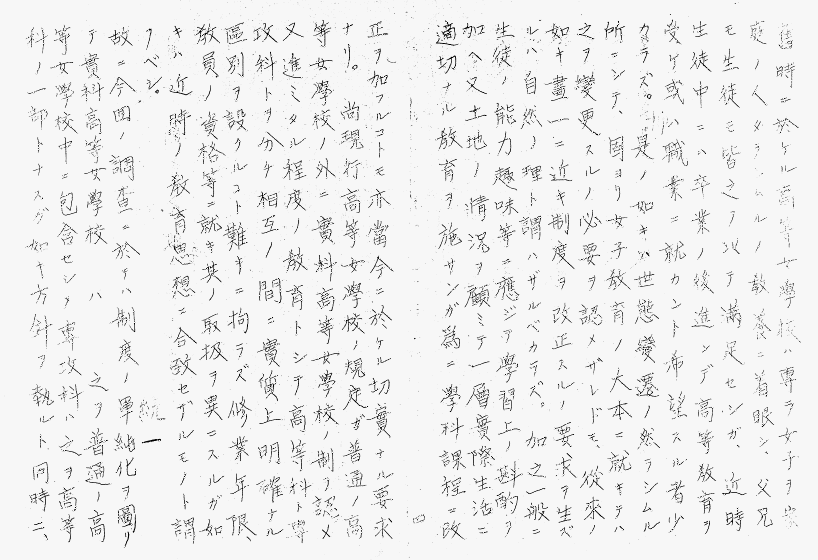 舊時ニ於ケル高等女學校ハ專ラ女子ヲ家
庭ノ人タラシムルノ教養ニ着眼シ、父兄
モ生徒モ皆之ヲ以テ滿足セシガ、近時
生徒中ニハ卒業ノ後進ンデ高等教育ヲ
受ケ或ハ職業ニ就カント希望スル者少
カラズ。是ノ如キハ世態變遷ノ然ラシムル
所ニシテ、固ヨリ女子教育ノ大本ニ就キテハ
之ヲ變更スルノ必要ヲ認メザレドモ、從來ノ
如キ畫一ニ近キ制度ヲ改正スルノ要求ヲ生ズ
ルハ自然ノ理ト謂ハザルベカラズ。加之一般ニ
生徒ノ能力趣味等ニ應ジテ學習上ノ斟酌ヲ
加ヘ又土地ノ情況ヲ顧ミテ一層實際生活ニ
適切ナル教育ヲ施サンガ爲ニ學科課程ニ改
正ヲ加フルコトモ亦當今ニ於ケル切實ナル要求
ナリ。尚現行高等女學校ノ規定ガ普通ノ高
等女學校ノ外ニ實科高等女學校ノ制ヲ認メ
又進ミタル程度ノ教育トシテ高等科ト專
攻科トヲ分ケ相互ノ間ニ實質上明確ナル
區別ヲ設クルコト難キニ拘ラズ修業年限
教員ノ資格等ニ就キ其ノ取扱ヲ異ニスルガ如
キハ近時ノ教育思想ニ合致セザルモノト謂
フベシ。
故ニ今回ノ調査ニ於テハ制度ノ單純化ヲ圖リ
統一
テ實科高等女學校ハ之ヲ普通ノ高
等女學校中ニ包含セシメ專攻科ハ之ヲ高等
科ノ一部トナスガ如キ方針ヲ執ルト同時ニ、